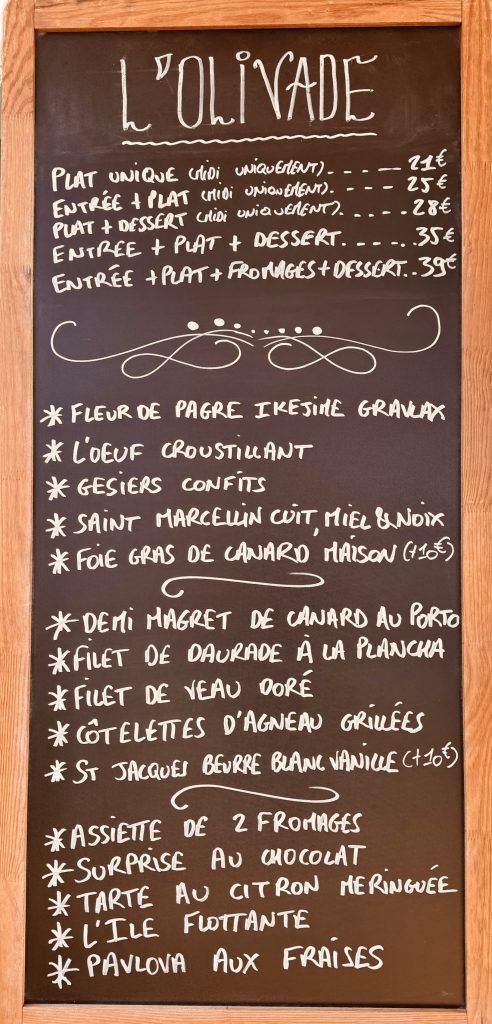 L'OLIVADE
PLAT UNIQUE (MIDI UNIQUEMENT)..... 21€
ENTRÉE + PLAT (MIDI UNIQUEMENT)..... 25€
PLAT + DESSERT (MIDI UNIQUEMENT)..... 28€
ENTREE + PLAT + DESSERT...... 35€
ENTRÉE + PLAT + FROMAGES + DESSERT.. 39€
* FLEUR DE PAGRE IKEJIME GRAVLAX
* L'OEUF CROUSTILLANT
* GESIERS CONFITS
* SAINT MARCELLIN CUIT, MIEL & NOIX
* FOIE GRAS DE CANARD MAISON (+10€)
* DEMI MAGRET DE CANARD AU PORTO
* FILET DE DAURADE À LA PLANCHA
* FILET DE VEAU DORÉ
* CÔTELETTES D'AGNEAU GRILLÉES
* ST JACQUES BEURRE BLANC VANILLE (+10€)
* ASSIETTE DE 2 FROMAGES
* SURPRISE AU CHOCOLAT
* TARTE AU CITRON MERINGUÉE
* L'ILE FLOTTANTE
* PAVLOVA AUX FRAISES